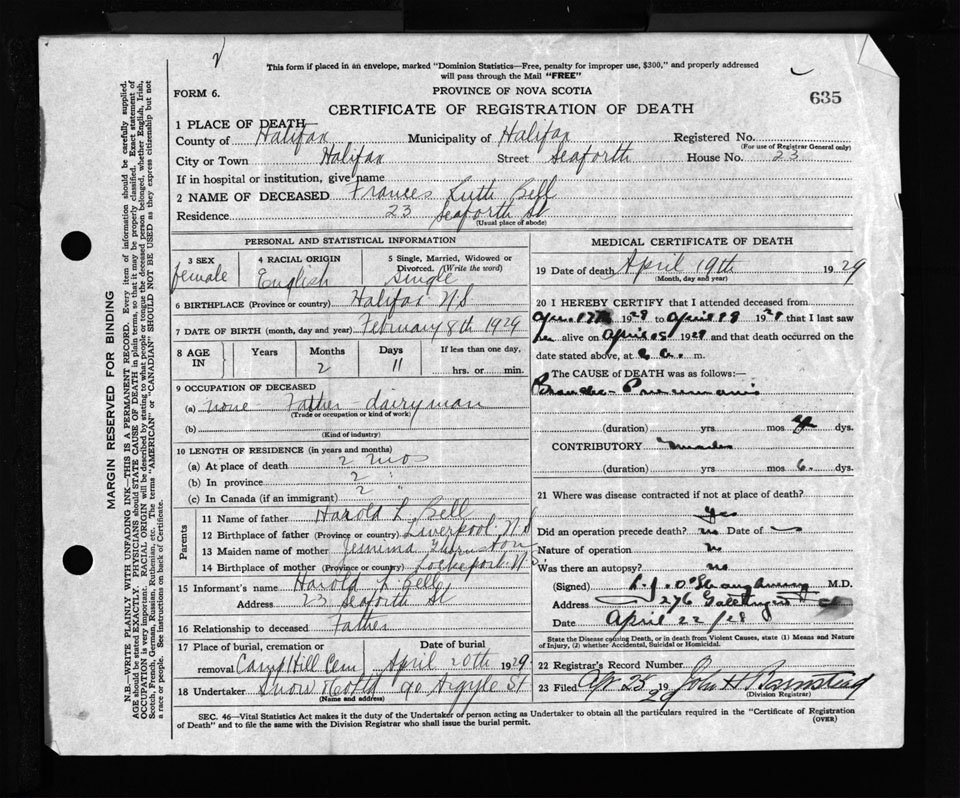 This form if placed in an envelope, marked "Dominion Statistics—Free, penalty for improper use, $300," and properly addressed
will pass through the Mail "FREE"
FORM 6.
PROVINCE OF NOVA SCOTIA
635
CERTIFICATE OF REGISTRATION OF DEATH
1 PLACE OF DEATH
County of Halifax Municipality of Halifax Registered No.
(For use of Registrar General only)
City or Town Halifax Street Seaforth House No. 23
If in hospital or institution, give name
2 NAME OF DECEASED Frances Ruth Bell
Residence 23 Seaforth St
(Usual place of abode)
PERSONAL AND STATISTICAL INFORMATION
3 SEX female
4 RACIAL ORIGIN English
5 Single, Married, Widowed or
Divorced. (Write the word)
Single
6 BIRTHPLACE (Province or country) Halifax N.S
7 DATE OF BIRTH (month, day and year) February 8th 1929
8 AGE IN
Years Months Days If less than one day,
2 11 hrs. or min.
9 OCCUPATION OF DECEASED
(a) none - Father - dairyman
(Trade or occupation or kind of work)
(b)
(Kind of industry)
10 LENGTH OF RESIDENCE (in years and months)
(a) At place of death 2 mos
(b) In province 2 "
(c) In Canada (if an immigrant) 2 "
Parents
11 Name of father Harold L. Bell
12 Birthplace of father (Province or country) Liverpool N.S
13 Maiden name of mother Jemima
14 Birthplace of mother (Province or country) Lockeport N.S.
15 Informant's name Harold L. Bell
Address 23 Seaforth St
16 Relationship to deceased Father
17 Place of burial, cremation or Date of burial
removal Camp Hill Cem April 20th 1929
18 Undertaker Snow & Co Ltd 90 Argyle St
(Name and address)
MEDICAL CERTIFICATE OF DEATH
19 Date of death April 19th 1929
(Month, day and year)
20 I HEREBY CERTIFY that I attended deceased from
to April that I last saw
her alive on April and that death occurred on the
date stated above, at 6 a. m.
The CAUSE of DEATH was as follows:—
Broncho-Pneumonia
(duration) yrs mos dys.
CONTRIBUTORY Measles
(duration) yrs mos 6 dys.
21 Where was disease contracted if not at place of death?
Yes
Did an operation precede death? no Date of
Nature of operation no
Was there an autopsy? no
(Signed) M.D.
Address 276 Gottingen
Date April 22/29
State the Disease causing Death, or in death from Violent Causes, state (1) Means and Nature
of Injury, (2) whether Accidental, Suicidal or Homicidal.
22 Registrar's Record Number
23 Filed Apr 25 1929 John H
(Division Registrar)
SEC. 46—Vital Statistics Act makes it the duty of the Undertaker or person acting as Undertaker to obtain all the particulars required in the "Certificate of Registration
of Death" and to file the same with the Division Registrar who shall issue the burial permit.
(OVER)
MARGIN RESERVED FOR BINDING
N.B.—WRITE PLAINLY WITH UNFADING INK—THIS IS A PERMANENT RECORD. Every item of information should be carefully supplied.
AGE should be stated EXACTLY. PHYSICIANS should STATE CAUSE OF DEATH in plain terms, so that it may be properly classified. Exact statement of
OCCUPATION is very important. RACIAL ORIGIN will be described by stating to what people or tongue the deceased person belonged, whether English, Irish,
Scotch, French, German, Russian, Ruthenian, etc. The terms "AMERICAN" or "CANADIAN" SHOULD NOT BE USED as they express citizenship but not
a race or people. See instructions on back of Certificate.